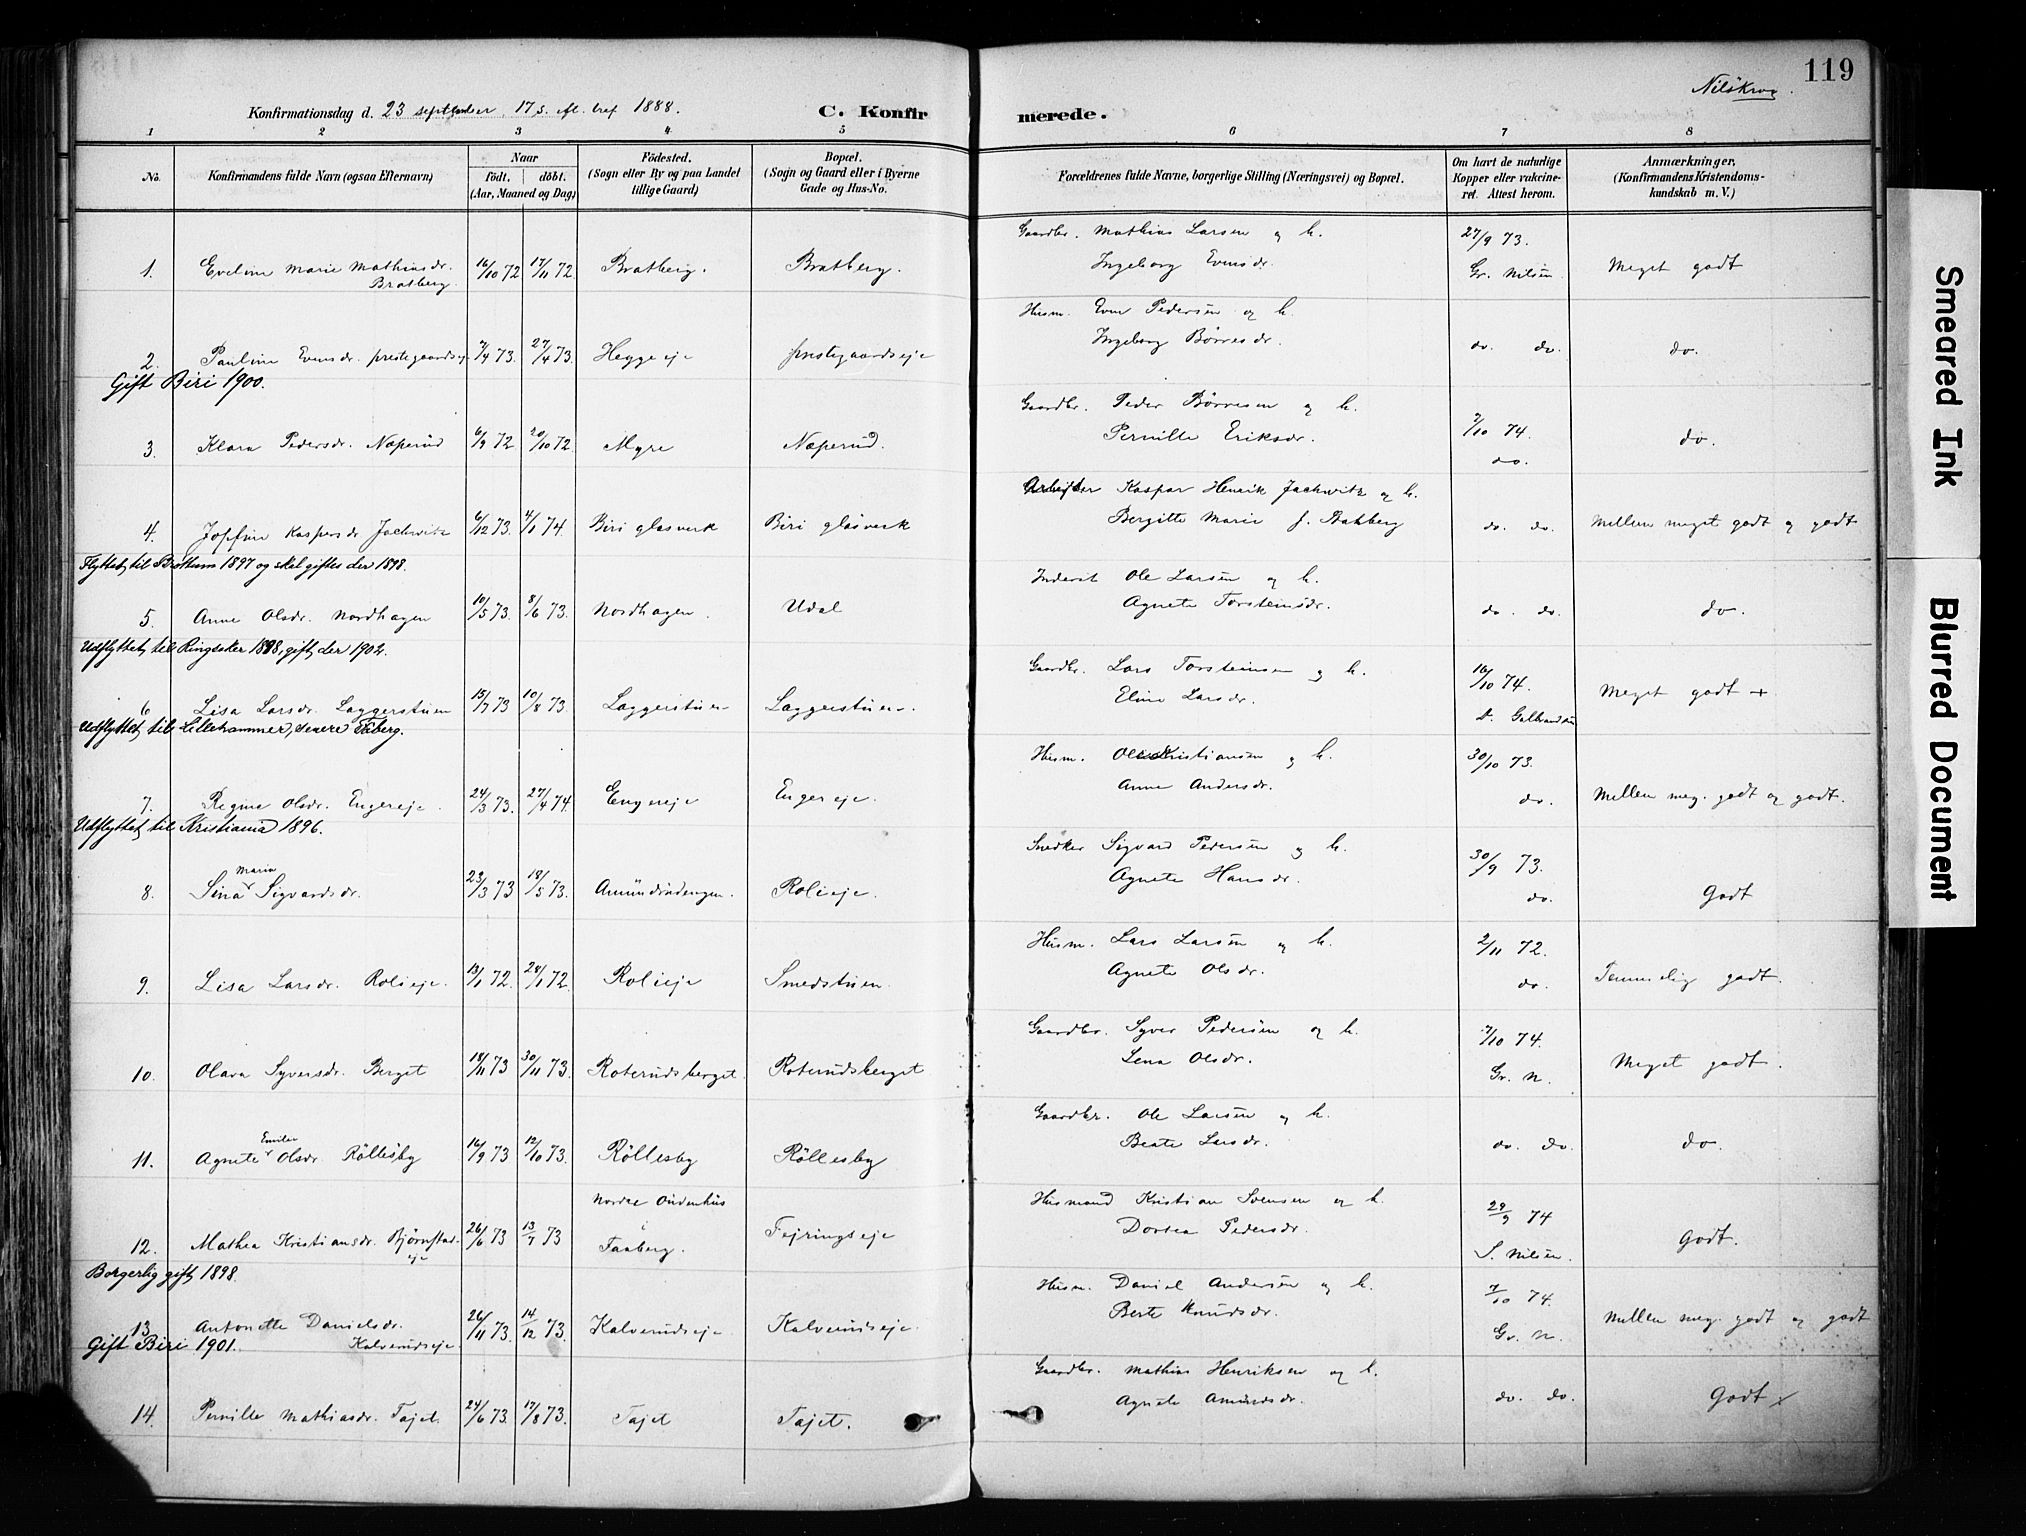 119
Konfirmationsdag d. 23 september. 17 s. ef. tref 1888.
C. Konfirmerede.
1 2 3 4 5 6 7 8
No.
Konfirmandens fulde Navn (ogsaa Efternavn)
Naar
födt. döbt.
(Aar, Maaned og Dag)
Födested.
(Sogn eller By og paa Landet
tillige Gaard)
Bopæl.
(Sogn og Gaard eller i Byerne
Gade og Hus-No.
Forældrenes fulde Navne, borgerlige Stilling (Næringsvei) og Bopæl.
Om havt de naturlige
Kopper eller vakcine-
ret. Attest herom.
Anmærkninger.
(Konfirmandens Kristendoms-
kundskab m. V.)
1. Eveline Marie Mathiasdr. Bratberg 16/10 72 17/11 72 Bratberg. Bratberg.
Gaardbr. Mathias Larsen og h.
Ingeborg Evensdr.
27/9 73.
Gr. Nilsen
Meget godt
2. Pauline Evensdr. prestegaardsej 7/4 73. 27/4 73. Heggeeje prestegaardseje
Husm. Even Pedersen og h.
Ingeborg Børresdr.
do. do.
do.
Gift Biri 1900.
3. Klara Pedersdr. Næperud 6/9 72 20/10 72. Myre Næperud.
Gaardbr. Peder Børresen og h.
Pernille Eriksdr.
7/10 74.
do.
do.
4. Josefine Kaspersdr Jachwitz 6/12 73. 4/1 74. Biri glasverk Biri glasverk
Arbejder Kaspar Henrik Jachwitz og h.
Bergitte Marie f. Bakberg
do. do.
Mellem meget godt og godt
Flyttet til Brøttum 1897 og skal giftes der 1898.
5. Anne Olsdr. Nordhagen 10/5 73. 8/6 73. Nordhagen. Udal
Inderst Ole Larsen og h.
Agnete Torsteinsdr.
do. do.
do.
Udflyttet til Ringsaker 1888, gift der 1902.
6 Lisa Larsdr. Laggerstuen 15/7 73 10/8 73. Laggerstuen Laggerstuen.
Gaardbr. Lars Torsteinsen og h.
Eline Larsdr.
16/10 74.
Meget godt +
Udflyttet til Lillehammer, senere Faberg.
7. Regine Olsdr. Engereje. 24/3 73. 27/4 74. Engereje Engereje.
Husm. Ole Kristiansen og h.
Anne Andersdr.
30/10 73.
do.
Mellem meg. godt og godt.
Udflyttet til Kristiania 1896.
8. Sina Maria Sigvardsdr. 23/3 73 18/5 73. Amundrudengen. Rolieje.
Snedker Sigvard Pedersen og h.
Agnete Hansdr.
30/9 73.
do.
Godt
9. Lisa Larsdr. Rolieje. 13/1 72. 28/1 72. Rolieje Smedstuen
Husm. Lars Larsen og h.
Agnete Olsdr.
2/11 72.
do.
Temmelig godt.
10. Olava Syversdr. Berget 18/11 73 30/11 73. Roterudsberget. Roterudsberget
Gaardbr. Syver Pedersen og h.
Lena Olsdr.
7/10 74.
Gr. N.
Meget godt.
11. Agnete Emilie Olsdr. Röllesby 16/9 73 12/10 73. Röllesby Röllesby
Gaardbr. Ole Larsen og h.
Beate Larsdr.
do. do.
do.
12. Mathea Kristiansdr. Bjørnstad-eje 26/6 73 13/7 73 Nordre Oudenhus i Faaberg. Fejringseje
Husmand Kristian Svensen og h.
Dortea Pedersdr.
29/9 74
S. Nilsen.
Godt.
Borgerlig gift 1898.
13 Antonette Danielsdr. Kalverudseje. 26/11 73. 14/12 73. Kalverudseje. Kalverudseje.
Husm. Daniel Andersen og h.
Berte Knudsdr.
7/10 74.
Gr. N.
Mellem meg. godt og godt
Gift Biri 1901.
14. Pernille Mathiasdr. Tajet. 24/6 73. 17/8 73. Tajet Tajet.
Gaardbr. Mathias Henriksen og h.
Agnete Amundsdr.
do. do.
Godt x
Smeared Ink
Blurred Document